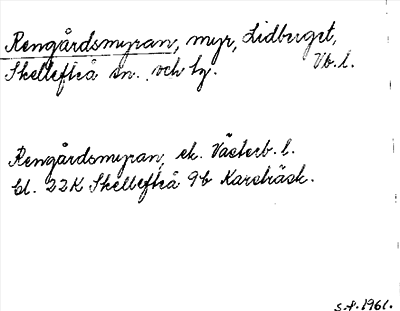 Rengårdsmyran, myr, Lidberget,
Skellefteå sn. och tg. Vb.l.
Rengårdsmyran, ek. Västerb. l.
bl. 22K Skellefteå 9b Karsträsk.
s.f. 1961.